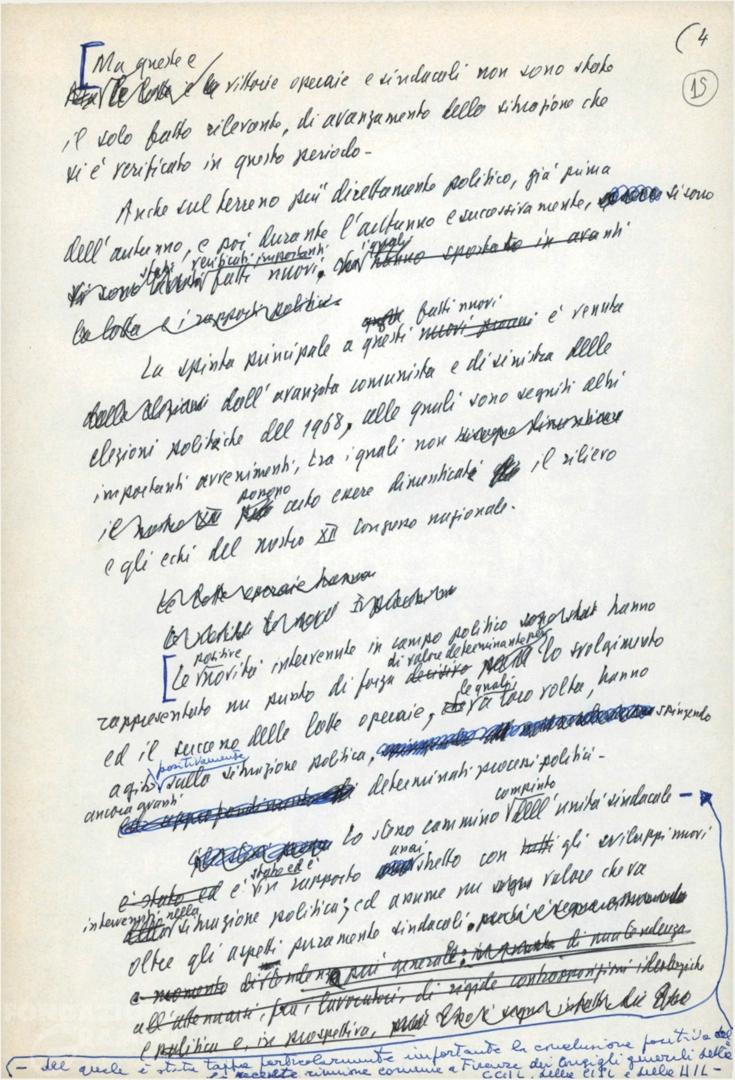 (4
15
[Ma queste e
le lotte e le vittorie operaie e sindacali non sono state
il solo fatto rilevante, di avanzamento della situazione che
si è verificato in questo periodo-
Anche sul terreno più direttamente politico, già prima
dell'autunno, e poi durante l'autunno e successivamente, si sono
stati verificati importanti i quali
vi sono fatti nuovi, hanno spostato in avanti
la lotta e i rapporti politici.
fatti nuovi
La spinta principale a questi nuovi è venuta
dalle elezioni dall'avanzata comunista e di sinistra delle
elezioni politiche del 1968, alle quali sono seguiti altri
importanti avvenimenti, tra i quali non bisogna dimenticare
possono
il nostro XII certo essere dimenticati il rilievo
e gli echi del nostro XII Congresso nazionale.
Le lotte operaie hanno
positive
[Le novità intervenute in campo politico sono state hanno
di valore determinante per
rappresentato un punto di forza decisivo per lo svolgimento
le quali
ed il successo delle lotte operaie, a loro volta, hanno
positivamente
agito sulla situazione politica, spingendo
ancora avanti
determinati processi politici-
compiuto
lo stesso cammino dell'unità sindacale -
stato ed è assai
è stato ed è in rapporto stretto con tutti gli sviluppi nuovi
intervenuti nella
situazione politica; ed assume un valore che va
oltre gli aspetti puramente sindacali. perché è segno
a momento di tendenza più generale: di una tendenza
all'attenuarsi, fra i lavoratori, di rigide contrapposizioni ideologiche
e politica e, in prospettiva,
- del quale è stata tappa particolarmente importante la conclusione positiva del
la recente riunione comune a Firenze dei Consigli generali della
CGIL, della CISL e della UIL-
FONDAZIONE